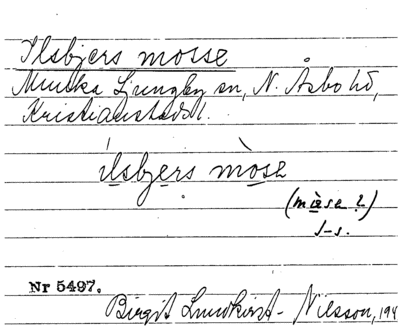 Ilsbjers mosse
Munka Ljungby sn, N. Åsbo hd,
Kristianstads l.
ilsbjers mòsə
(mòsə ?)
J-s.
Nr 5497.
Birgit Lundkvist-Nilsson, 194